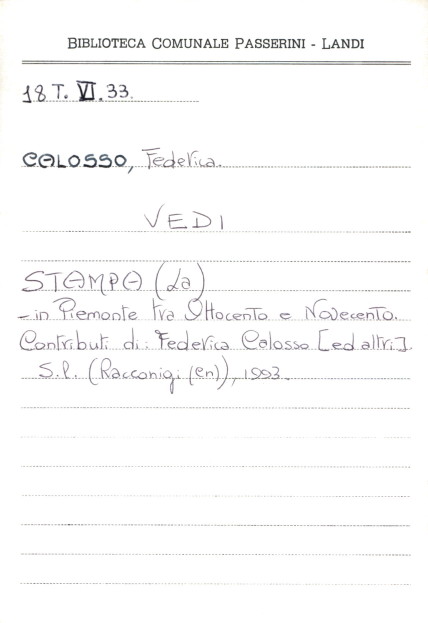 BIBLIOTECA COMUNALE PASSERINI - LANDI
18 T. VI. 33.
CALOSSO, Federica.
VEDI
STAMPA (La)
- in Piemonte tra Ottocento e Novecento.
Contributi di: Federica Calosso [ed altri].
S.l. (Racconigi (Cn)), 1993.